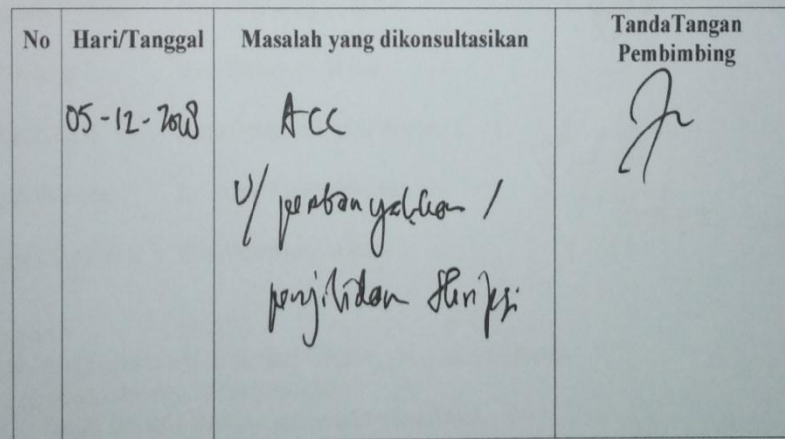 No Hari/Tanggal Masalah yang dikonsultasikan TandaTangan Pembimbing
05-12-2018 ACC
u/ perbanyakkan /
penjilidan skripsi